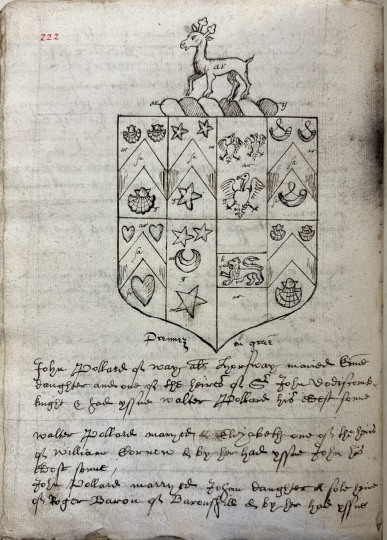 222
ar
Prennez en gree
John Pollard of way als Horsway maried Eme
daughter and one of the heires of Sr John Dodiscomb
knight & had yssue walter Pollard his eldest sonne
walter Pollard maryed Elizabeth one of the heirs
of William Cornew & by her had yssue John his
eldest sonne,
John Pollard marryed Johan daughter & sole heire
of Roger Baron of & by her had yssue